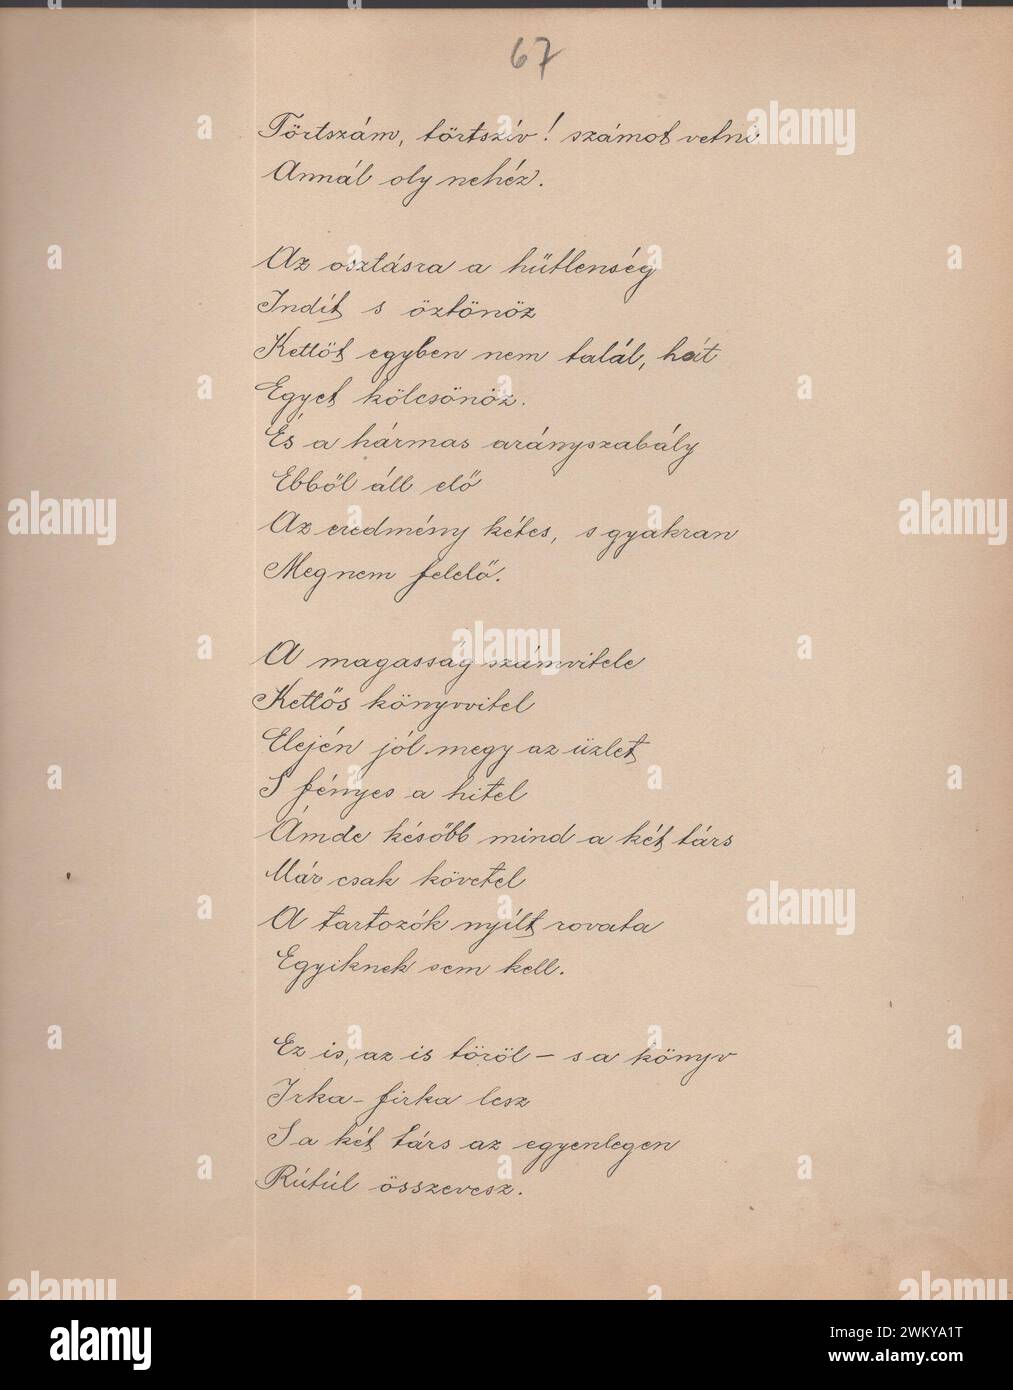 67
Törtszám, törtszív! számot vetni
Annál oly nehéz.
Az osztásra a hűtlenség
Indít s öztönöz
Kettőt egyben nem talál, hát
Egyet kölcsönöz.
És a hármas arányszabály
Ebből áll elő
Az eredmény kétes, s gyakran
Meg nem felelő.
A magasság számvitele
Kettős könyvvitel
Elején jól megy az üzlet
S fényes a hitel
Ámde később mind a két társ
Már csak követel
A tartozók nyílt rovata
Egyiknek sem kell.
Ez is, az is töröl – s a könyv
Irka-firka lesz
S a két társ az egyenlegen
Rútúl összevesz.
alamy
Image ID: 2WKYA1T
www.alamy.com